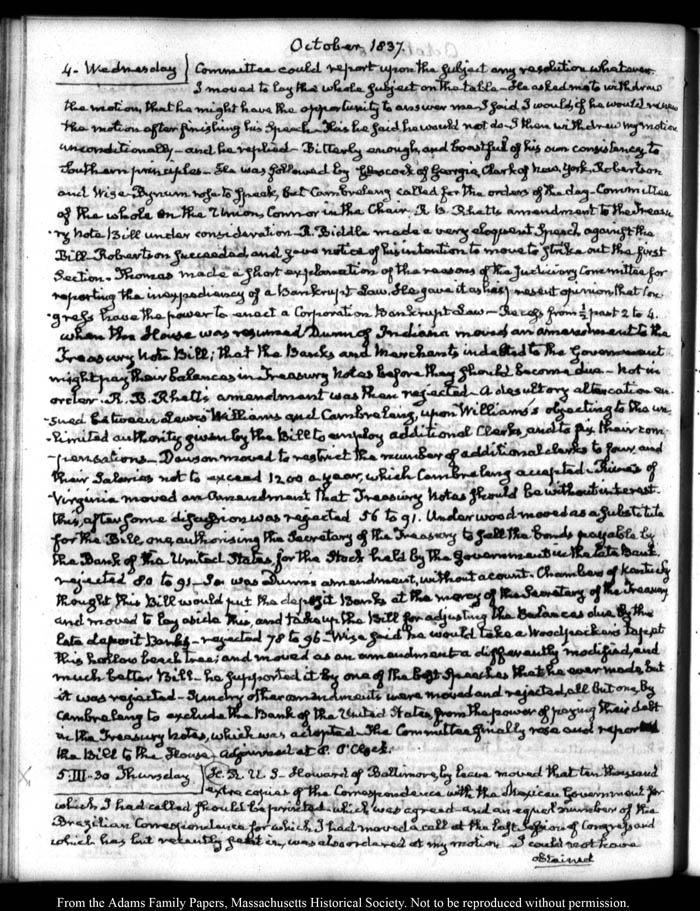 October 1837.
4. Wednesday} Committee could report upon the subject any resolution whatever.
I moved to lay the whole subject on the table – He asked me to withdraw
the motion, that he might have the opportunity to answer me – I said I would, if he would renew
the motion after finishing his Speech – This he said he would not do – I then withdrew my motion
unconditionally – and he replied – Bitterly enough, and boastful of his own consistency to
Southern principles – He was followed by Glascock of Georgia, Clark of New York, Robertson
and Wise – Bynum rose to speak, but Cambreleng called for the orders of the day – Committee
of the whole on the Union, Connor in the Chair. R. B. Rhett's amendment to the Treasu-
-ry Note Bill under consideration – R. Biddle made a very eloquent Speech against the
Bill – Robertson succeeded and gave notice of his intention to move to strike out the first
Section. Thomas made a short explanation of the reasons of the Judiciary Committee for
reporting the inexpediency of a Bankrupt Law. He gave it as his present opinion that Con-
gress have the power to enact a Corporation Bankrupt Law – Recess from ½ past 2 to 4.
When the House was resumed Dunn of Indiana moved an amendment to the
Treasury Note Bill; that the Banks and Merchants indebted to the Government
might pay their balances in Treasury Notes before they should become due – Not in
order. R. B. Rhett's amendment was then rejected – A desultory altercation en-
-sued between Lewis Williams and Cambreleng, upon Williams's objecting to the un-
-limited authority given by the Bill to employ additional Clerks, and to fix their com-
-pensations – Dawson moved to restrict the number of additional clerks to four, and
their Salaries not to exceed 1200 a year, which Cambreleng accepted – Rives of
Virginia moved an Amendment that Treasury Notes should be without interest.
this, after some discussion was rejected 56 to 91. Underwood moved as a substitute
for the Bill, one authorising the Secretary of the Treasury to sell the bonds payable by
the Bank of the United States, for the Stock held by the Government in the late Bank
rejected 80 to 91 – So was Dunn's amendment, without a count – Chambers of Kentucky
thought this Bill would put the deposit Banks at the mercy of the Secretary of the Treasury
and moved to lay aside this, and take up the Bill for adjusting the balances due by the
late deposit Banks – rejected 78 to 96 – Wise said he would take a Woodpecker's tap at
this hollow beech tree; and moved as an amendment a differently modified, and
much better Bill – he supported it by one of the best Speeches that he ever made, but
it was rejected – Sundry other amendments were moved and rejected, all but one, by
Cambreleng to exclude the Bank of the United States, from the power of paying their debt
in the Treasury Notes, which was adopted – The Committee finally rose and reported
the Bill to the House – Adjourned at 8. O'Clock.
5. III. 30 Thursday} H. R. U. S. Howard of Baltimore, by leave moved that ten thousand
extra copies of the Correspondence with the Mexican Government for
which I had called should be printed – which was agreed – and an equal number of the
Brazilian Correspondence for which I had moved a call at the last Session of Congress and
which has but recently been sent in, was also ordered at my motion – I could not have
obtained
From the Adams Family Papers, Massachusetts Historical Society. Not to be reproduced without permission.